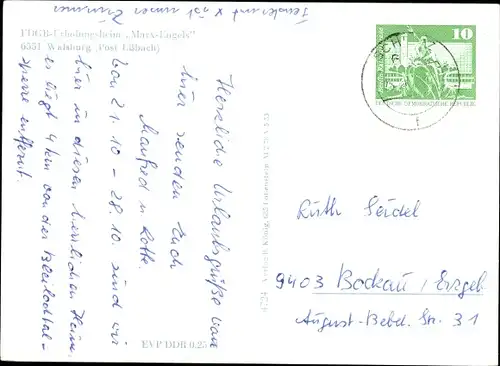 Fenstermit x ist unser Zimmer
FDGB-Erholungsheim „Marx-Engels"
6551 Walsburg (Post Eßbach)
Herzliche Urlaubsgrüße von
hier senden Euch
Manfred u. Lotte.
Vom 21.10 - 28.10. sind wir
hier in diesem herrlichen Heim.
es liegt 4 km von der Bleilochtal-
sperre entfernt.
EVP DDR 0,25
10
DEUTSCHE DEMOKRATISCHE REPUBLIK
Ruth Seidel
9403 Bockau / Erzgeb
August-Bebel. Str. 31